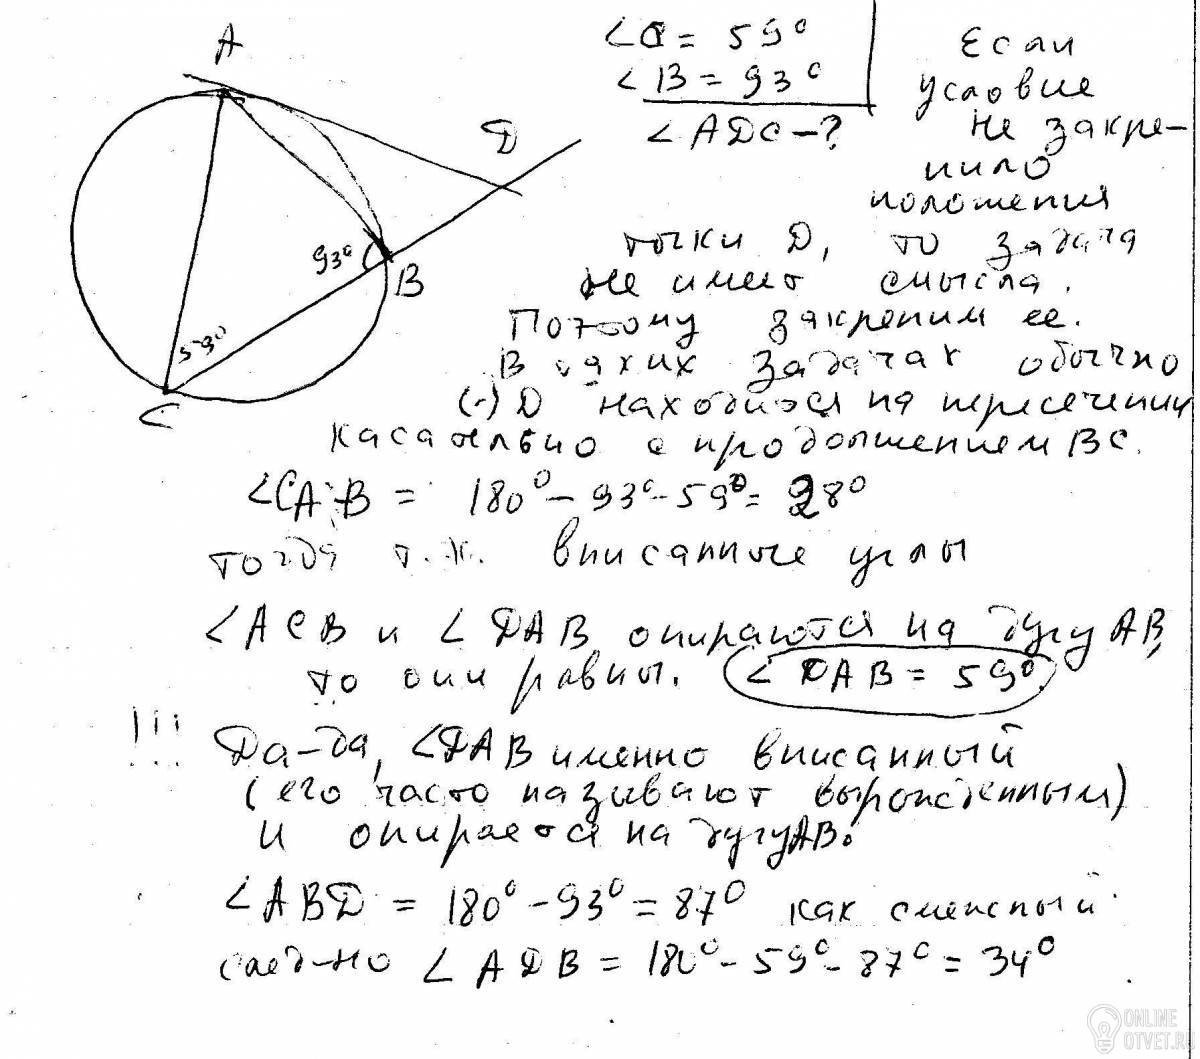 ∠C = 59°
∠B = 93°
∠ADC – ?
Если
условие
не закре-
пило
положения
точки D, то задача
не имеет смысла.
Поэтому закрепим ее.
В таких задачах обычно
(·) D находится на пересечении
касательно с продолжением BC.
A
D
93°
B
59°
C
∠CAB = 180° – 93° – 59° = 28°
тогда т.к. вписанные углы
∠ACB и ∠DAB опираются на дугу AB,
то они равны. ∠DAB = 59°
!!! Да-да, ∠DAB именно вписанный
(его часто называют вырожденным)
и опирается на дугу AB.
∠ABD = 180° – 93° = 87° как смежный
след-но ∠ADB = 180° – 59° – 87° = 34°
ONLINE
OTVET.RU